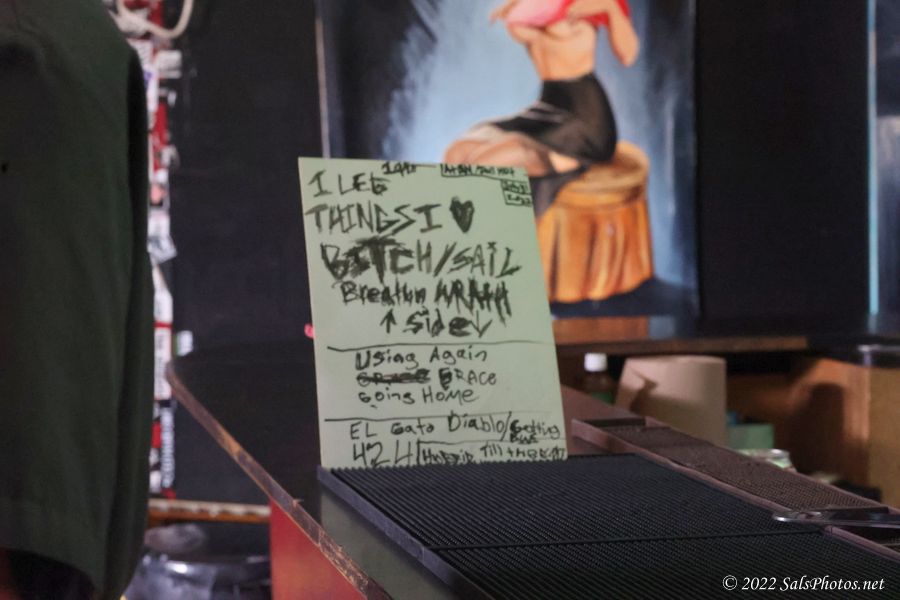 I LET
THINGS I ♥
BITCH/SAIL
Breathn WRATH
↑ Side
Using Again
GRACE
Going Home
EL Gato Diablo/Getting
424
© 2022 SalsPhotos.net